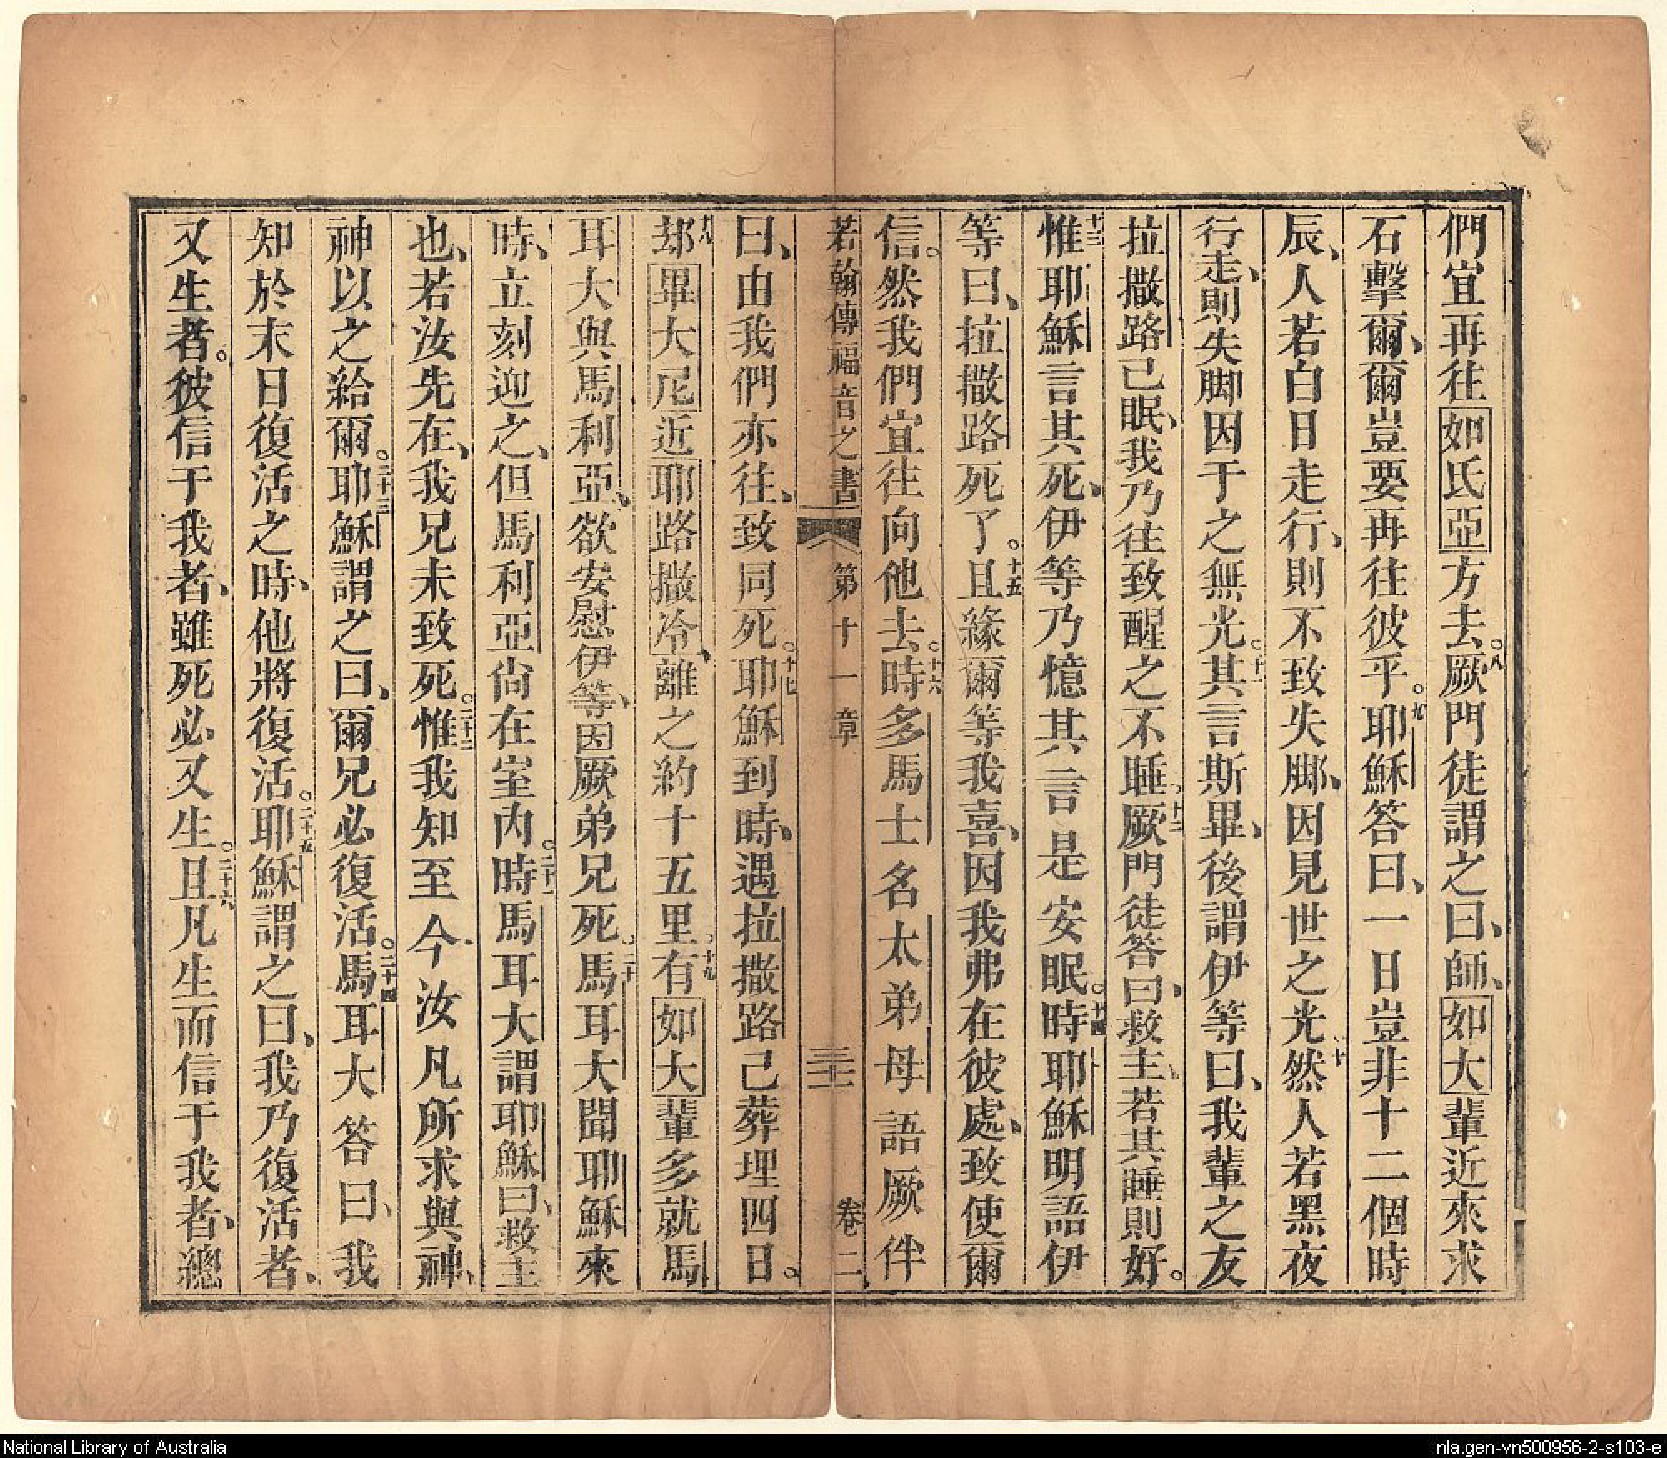 們宜再往如氏亞方去。八厥門徒謂之曰、師、如大輩近來求
石擊爾、爾豈要再往彼乎。九耶穌答曰、一日豈非十二個時
辰、人若白日走行、則不致失脚、因見世之光。十然人若黑夜
行走、則失脚因于之無光。十一其言斯畢、後謂伊等曰、我輩之友
拉撒路己眠、我乃往致醒之不睡。十二厥門徒答曰、救主、若其睡則好。
十三惟耶穌言其死、伊等乃憶其言是安眠。十四時耶穌明語伊
等曰、拉撒路死了。十五且緣爾等我喜、因我弗在彼處、致使爾
信。然我們宜往向他去。十六時多馬士名太弟母語厥伴
若翰傳福音之書 第十一章 三十一 卷二
曰、由我們亦往、致同死。十七耶穌到時、遇拉撒路己葬埋四日。
十八却畢大尼近耶路撒冷、離之約十五里。十九有如大輩多就馬
耳大與馬利亞、欲安慰伊等、因厥弟兄死。二十馬耳大聞耶穌來
時、立刻迎之、但馬利亞尚在室內。二十一時馬耳大謂耶穌曰、救主
也、若汝先在、我兄未致死。二十二惟我知至今汝凡所求與神、
神以之給爾。二十三耶穌謂之曰、爾兄必復活。二十四馬耳大答曰、我
知於末日復活之時、他將復活。二十五耶穌謂之曰、我乃復活者、
又生者。彼信于我者、雖死必又生。二十六且凡生而信于我者、總
National Library of Australia
nla.gen-vn500956-2-s103-e